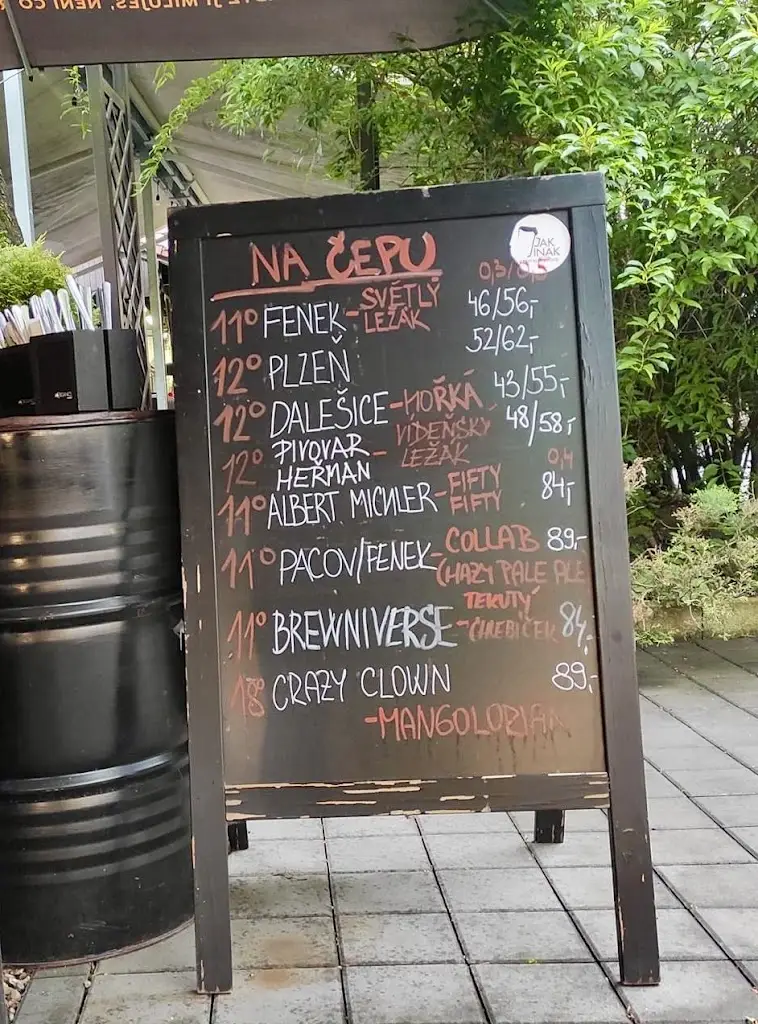 NA ČEPU
JAK JINAK
0,3/0,5
11° FENEK - SVĚTLÝ LEŽÁK 46/56,-
12° PLZEŇ 52/62,-
12° DALEŠICE - HOŘKÁ 43/55,-
12° PIVOVAR HEŘMAN - VÍDEŇSKÝ LEŽÁK 48/58,-
0,4
11° ALBERT MICHLER - FIFTY FIFTY 84,-
11° PACOV/FENEK - COLLAB 89,-
(HAZY PALE ALE
11° BREWNIVERSE - TEKUTÝ CHLEBÍČEK 84,-
18° CRAZY CLOWN 89,-
- MANGOLORIAN